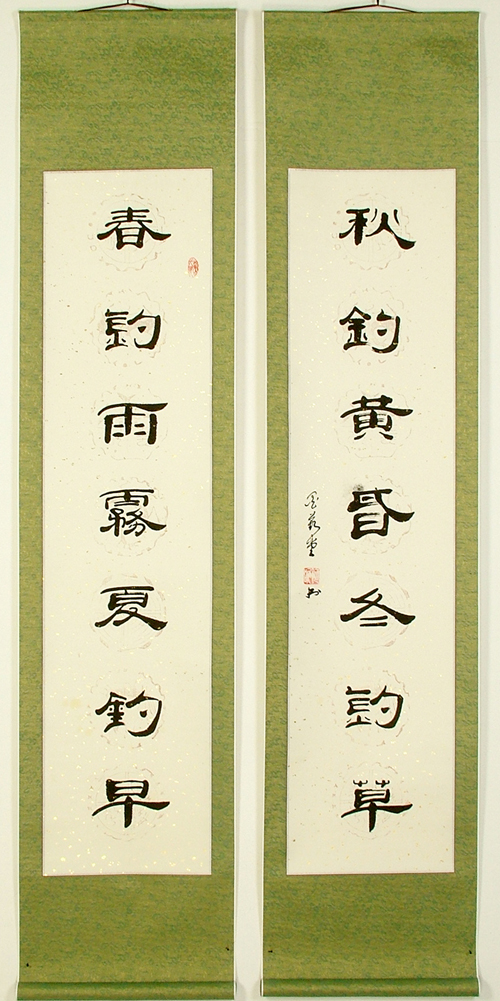 春釣雨霧夏釣早
秋釣黄昏冬釣草